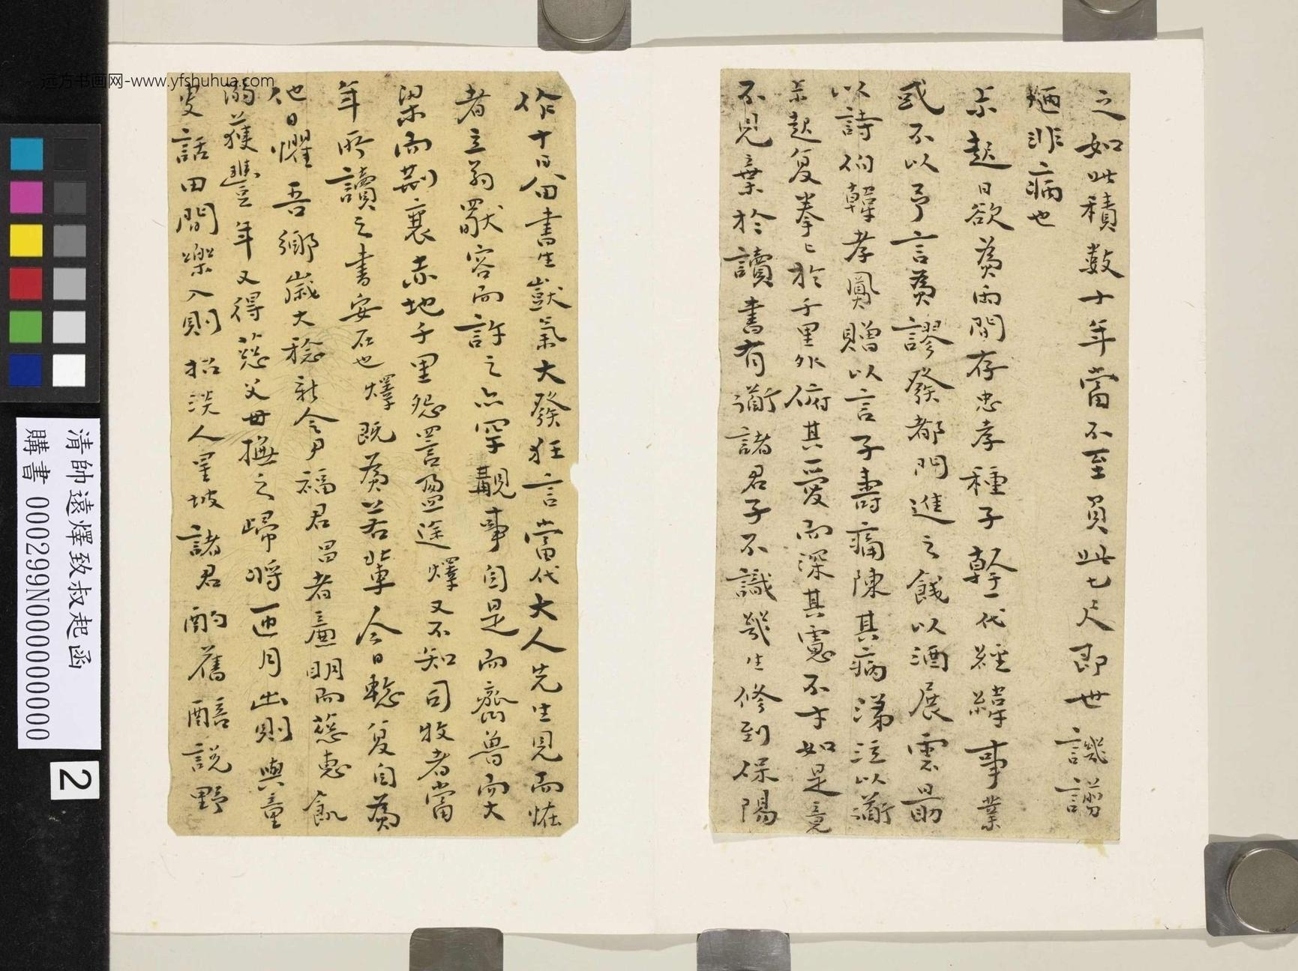 远方书画网-www.yfshuhua.com
之如此積數十年當不至負此七尺即世譏謭
爲非病也
叔起日欲爲兩間存忠孝種子幹一代經緯事業
或不以予言爲謬發都門進之餞以酒展雲最
以詩向韓孝鳳贈以言子壽痛陳其病涕泣以
叔起復拳拳於千里外俯其愛而深其慮不才如是竟
不見棄於讀書有諸君子不識幾生修到保陽
作十日留書生獃氣大發狂言當代大人先生見而
者三翁獸容而許之亦罕觀事自是而齊魯而大
梁而荊襄赤地千里怨詈盈途燡又不知司牧者當
年所讀之書安在也燡既爲若輩今日軫復自爲
他日懼吾鄉歲大稔新令尹福君昌者廉明而慈惠飢
溺獲豐年又得慈父母撫之歸將匝月出則與童
叟話田間樂入則招淡人星坡諸君酌舊醅說野
清帥遠燡致叔起函
購書 000299N000000000
2